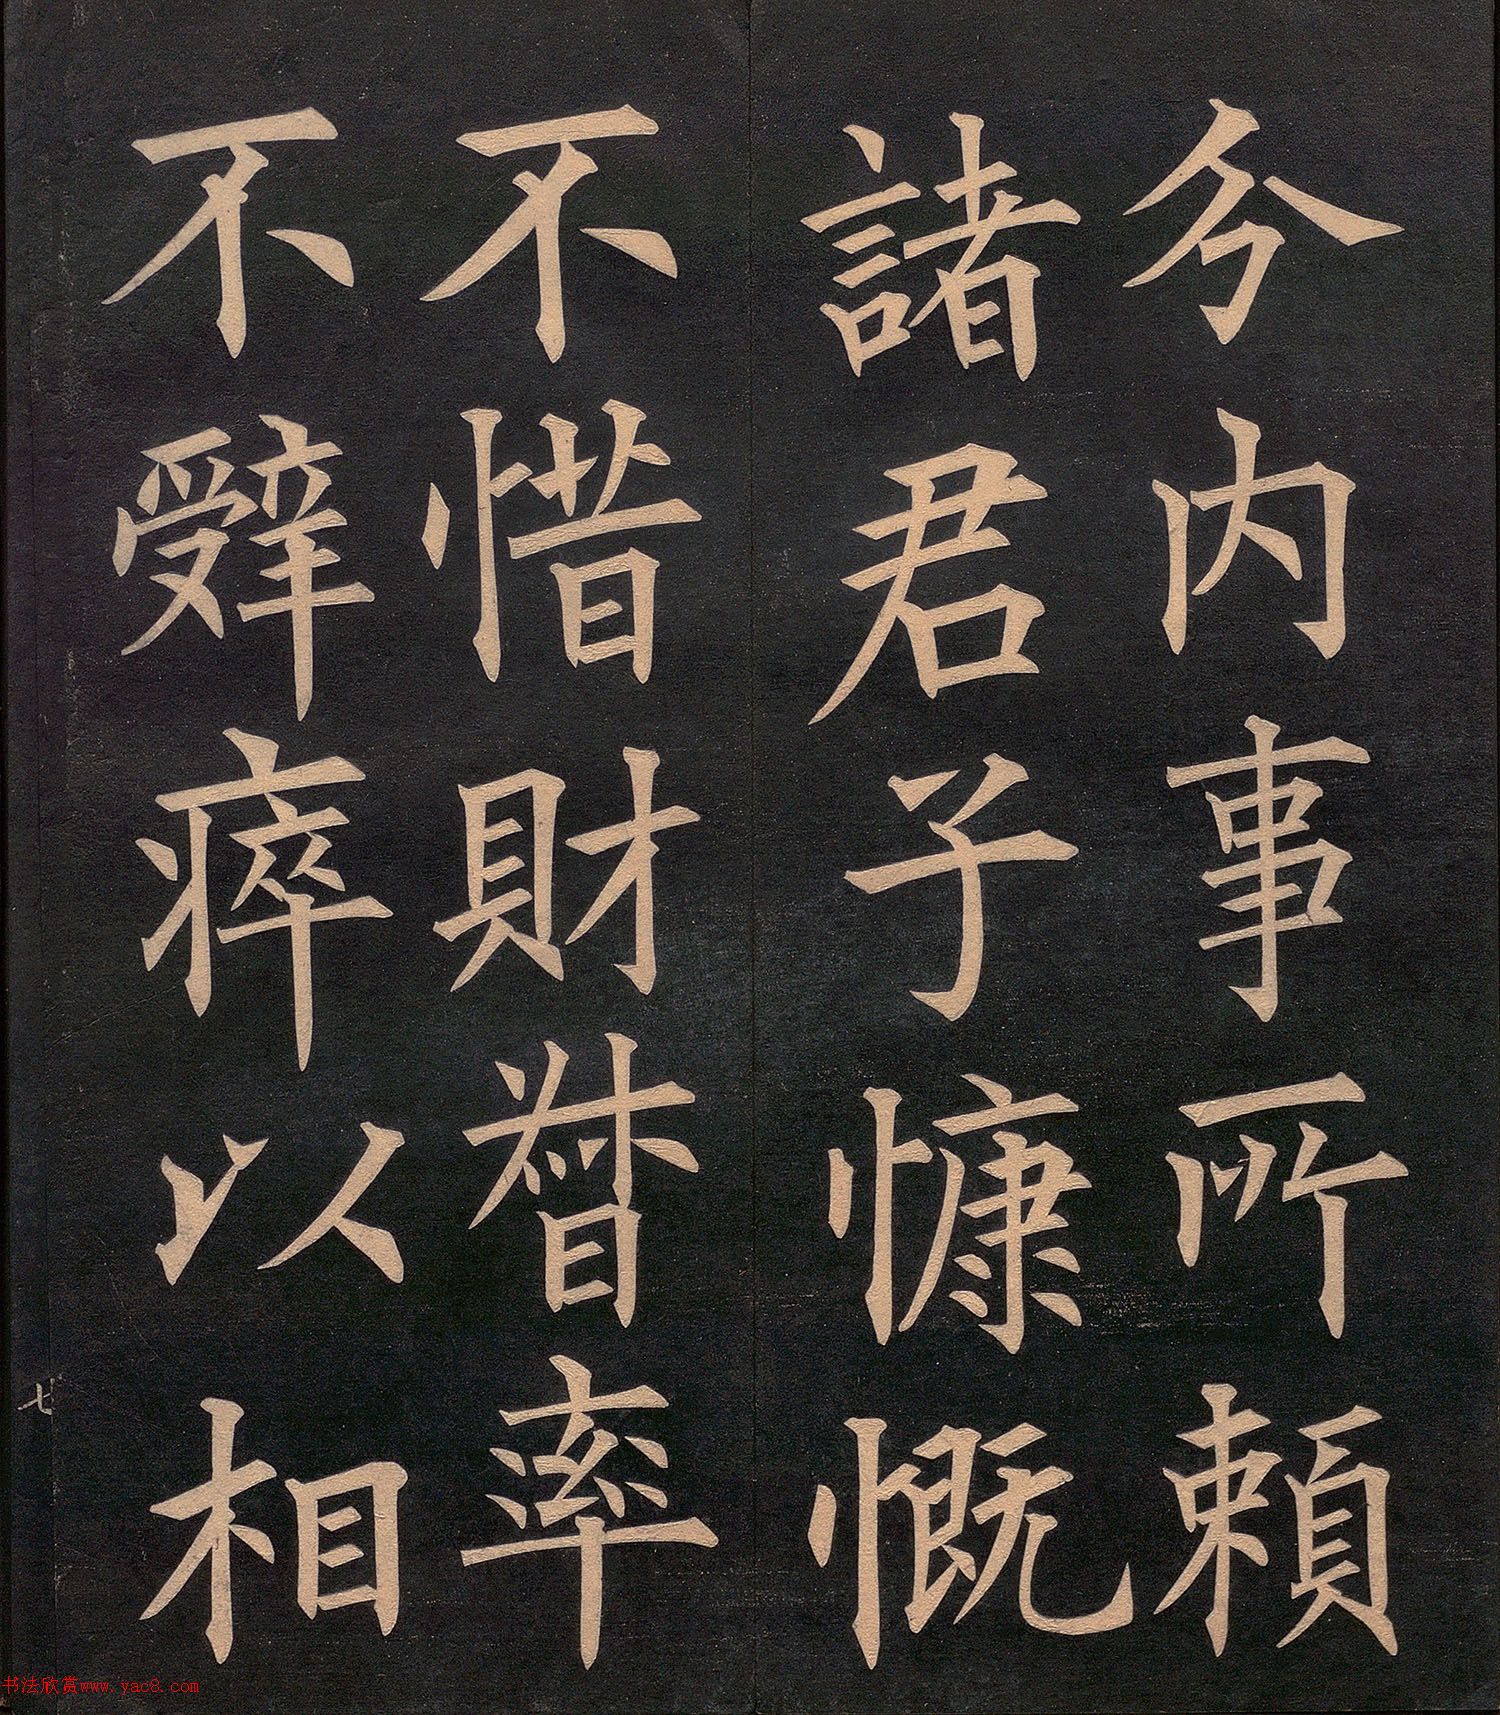 今内事所賴
諸君子慷慨
不惜財督率
不辤瘁以相
七
书法欣赏www.yac8.com